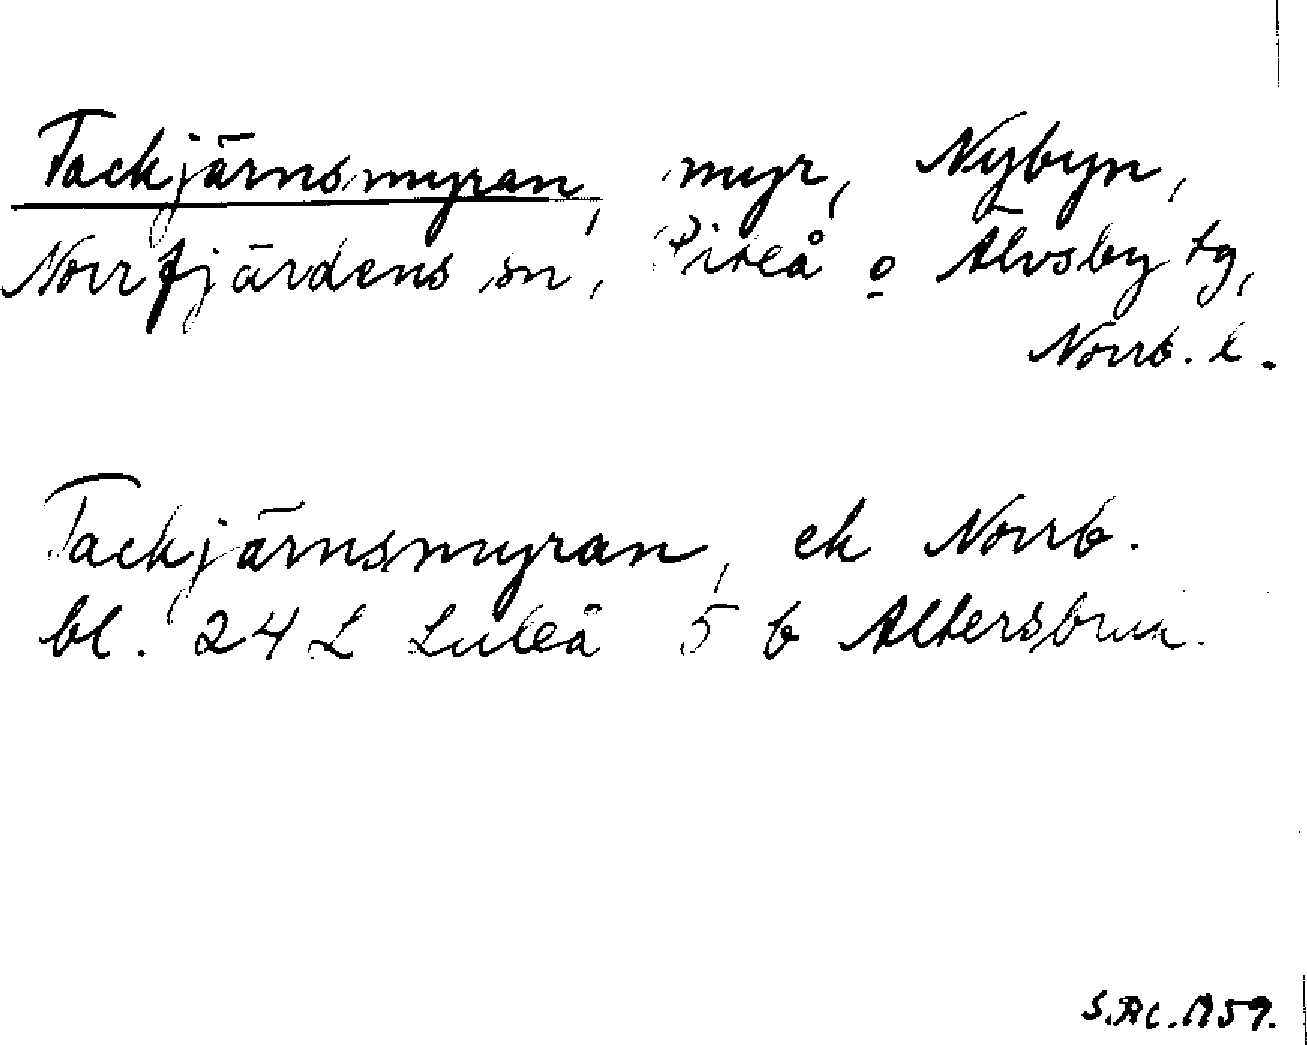 Tackjärnsmyran, myr, Nybyn,
Norrfjärdens sn, Piteå o Älvsby tg,
Norrb. l.
Tackjärnsmyran, ek Norrb.
bl. 24 L Luleå 5 b Altersbruk.